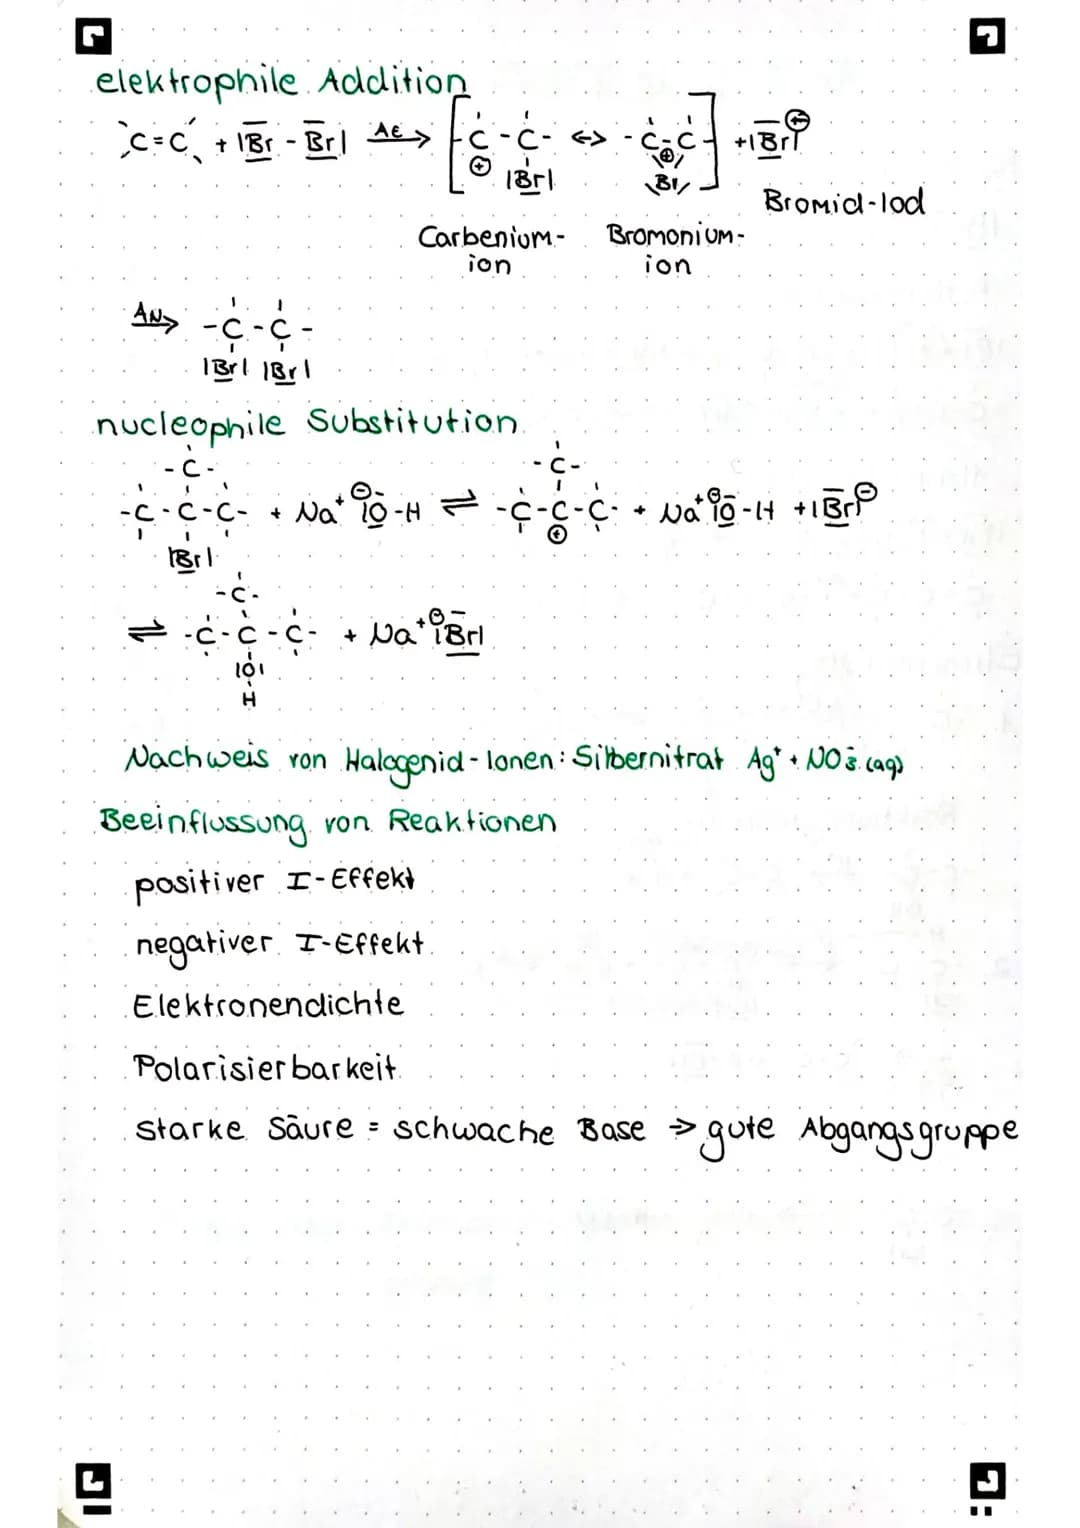 elektrophile Addition
C=C + |Br - Br| AE → [-C-C- ↔ -C-C-] + |Br|⊖
⊕ |Br| ⊕ Br
Bromid-Iod
Carbenium- Bromonium-
ion ion
AN → -C-C-
|Br| |Br|
nucleophile Substitution
-C- -C-
-C-C-C- + Na⁺ ⊖|O-H ⇌ -C-C-C- + Na⁺ ⊖|O-H + |Br|⊖
|Br| ⊕
-C-
⇌ -C-C-C- + Na⁺ ⊖|Br|
|O|
H
Nachweis von Halogenid-Ionen: Silbernitrat Ag⁺ + NO₃⁻ (aq)
Beeinflussung von Reaktionen
positiver I-Effekt
negativer I-Effekt
Elektronendichte
Polarisierbarkeit
starke Säure = schwache Base → gute Abgangsgruppe